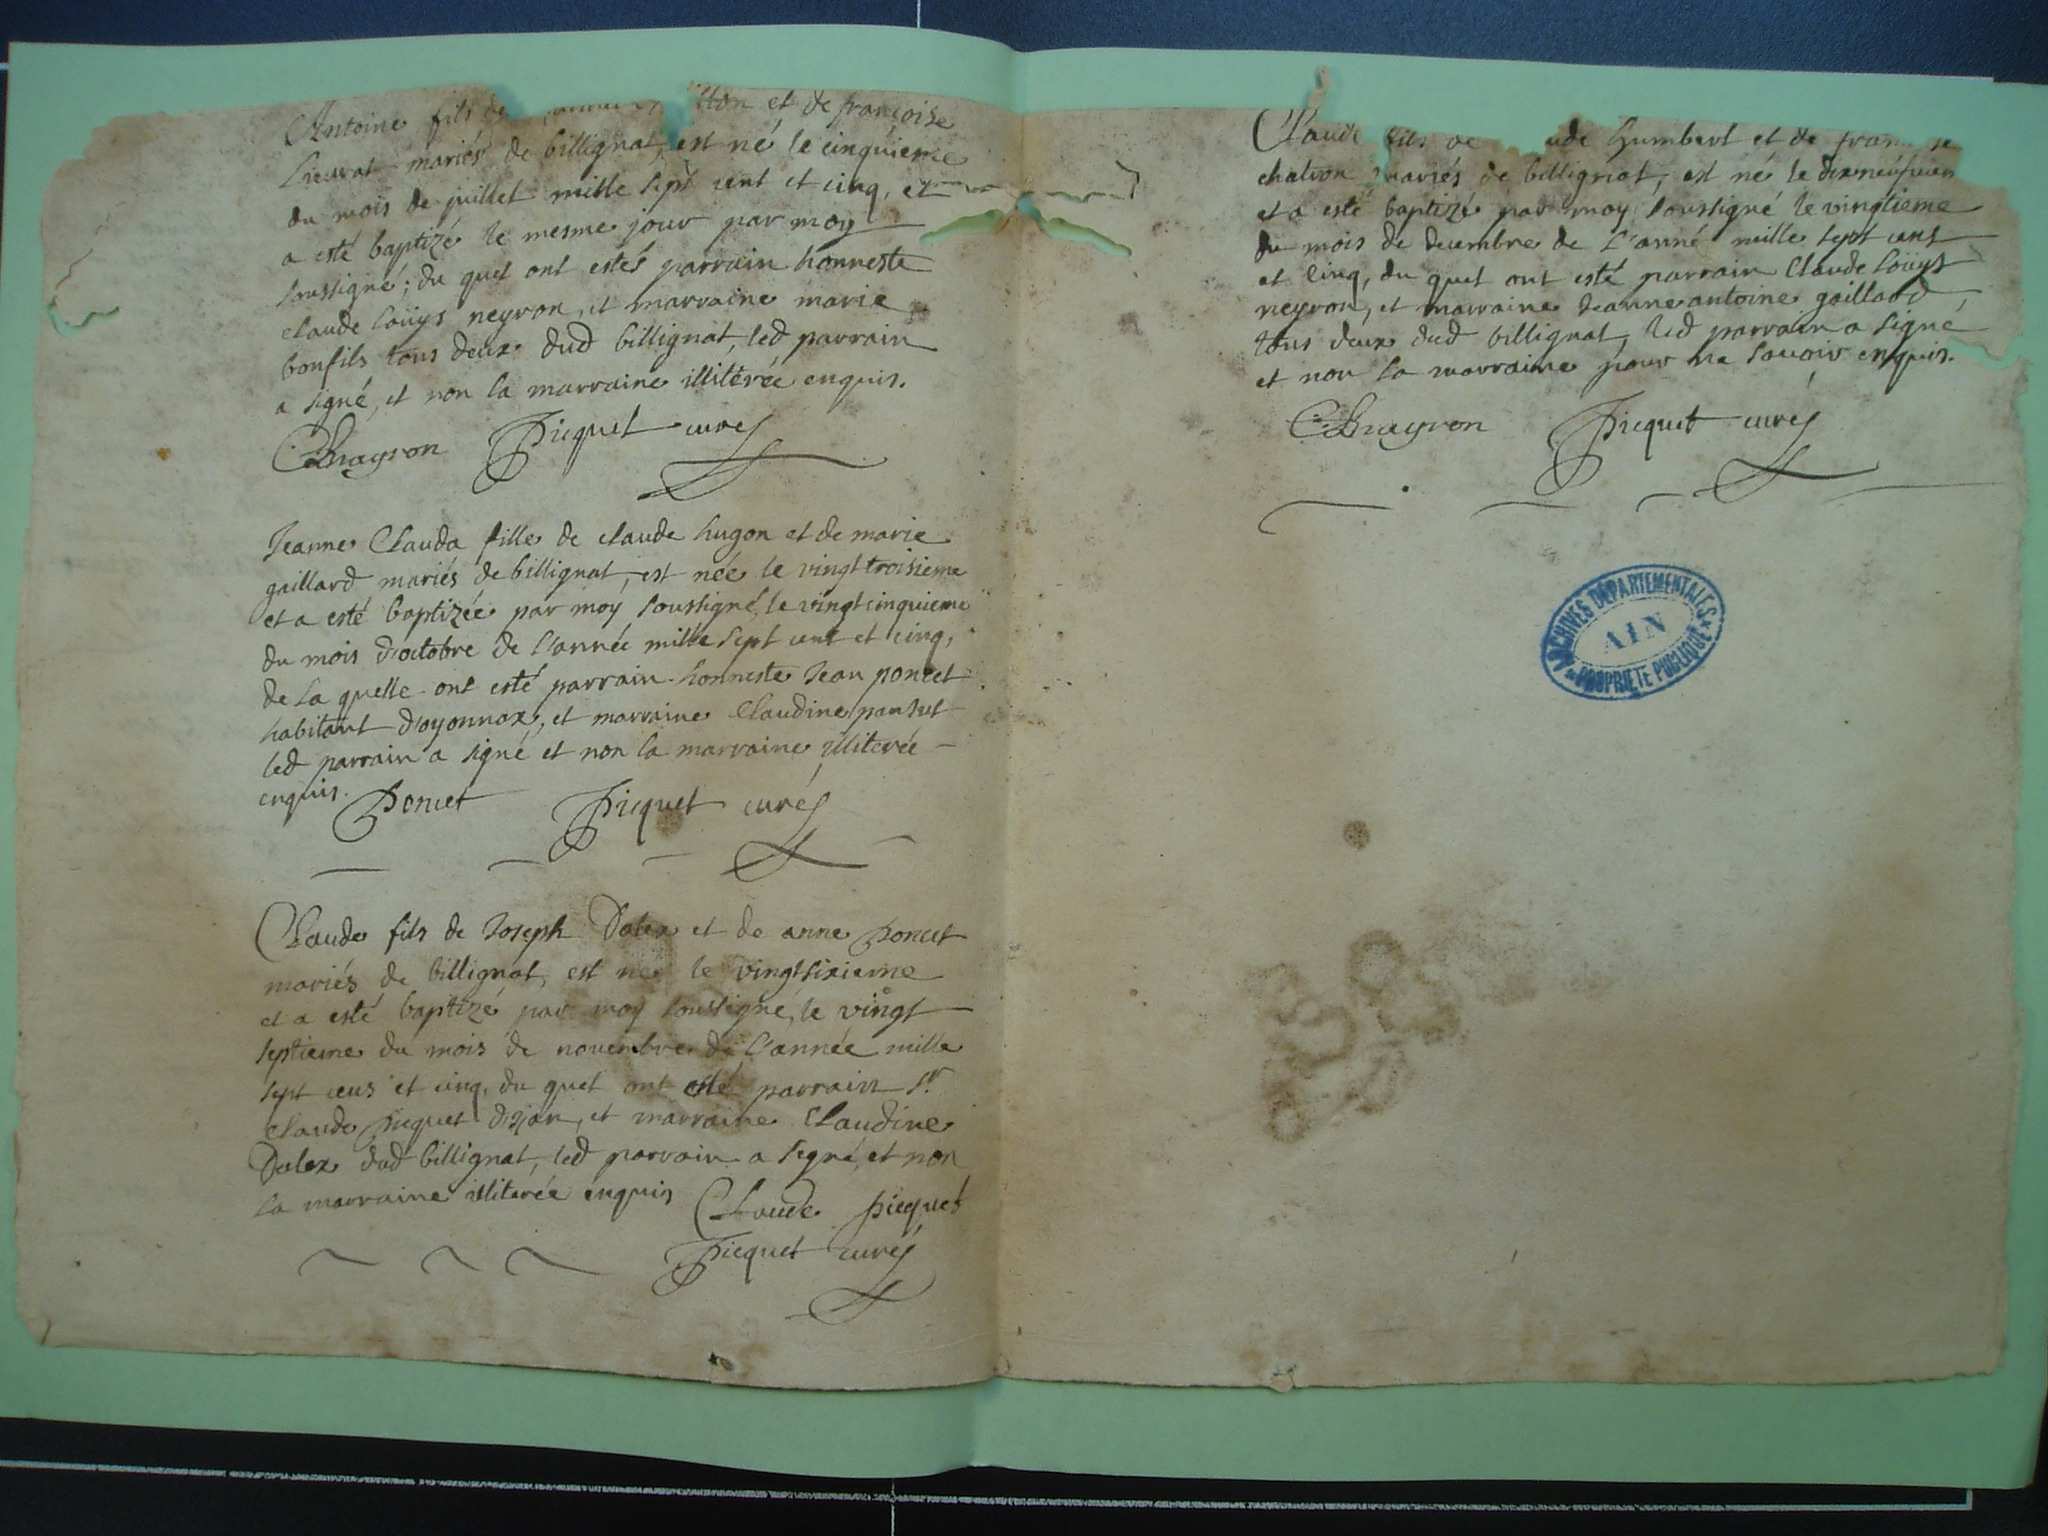 Antoine fils de et de françoise
mariés de billignat, est né le cinquieme
du mois de juillet mille sept cent et cinq, et
a esté baptizé le mesme jour par moy
soussigné; du quel ont estés parrain honneste
claude loüys neyron, et marraine marie
bonfils tous deux dud billignat, led parrain
a signé, et non la marraine illiterée enquis.
Picquet curé
Jeanne Clauda fille de claude hugon et de marie
gaillard mariés de billignat, est née le vingt troisieme
et a esté baptizée par moy soussigné, le vingt cinquieme
du mois d'octobre de l'année mille sept cent et cinq,
de la quelle ont esté parrain honneste Jean poncet
habitant d'oyonnax, et marraine Claudine pansut
led parrain a signé et non la marraine illiterée
enquis. Poncet Picquet curé
Claude fils de Joseph Dalex et de anne Poncet
mariés de billignat, est né le vingt sixieme
et a esté baptizé par moy soussigné, le vingt
septieme du mois de novembre de l'année mille
sept cens et cinq, du quel ont esté parrain Sr
Claude Picquet et marraine Claudine
Dalex dud billignat, led parrain a signé, et non
la marraine illiterée enquis Claude Picquet
Picquet curé
Claude fils de humbert et de
chatron mariés de billignat, est né le dixneufviem
et a esté baptizé par moy soussigné le vingtieme
du mois de decembre de l'anné mille sept cens
et cinq, du quel ont esté parrain Claude loüys
neyron, et marraine Jeanne antoine gaillard,
tous deux dud billignat, led parrain a signé
et non la marraine pour ne savoir enquis.
Picquet curé
ARCHIVES DÉPARTEMENTALES
AIN
PROPRIÉTÉ PUBLIQUE